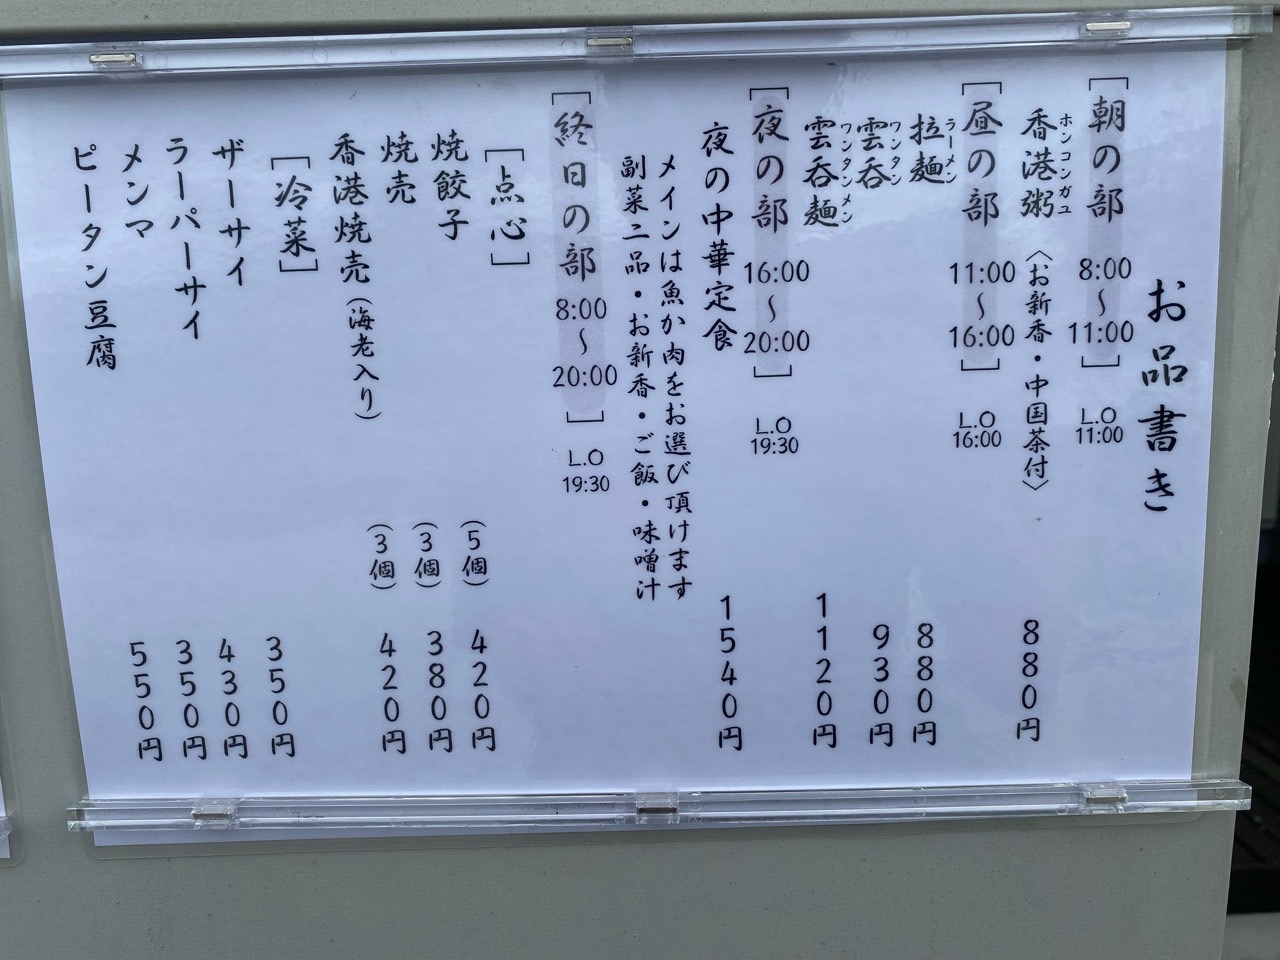 お品書き
朝の部 8:00〜11:00 L.O 11:00
ホンコンガユ
香港粥〈お新香・中国茶付〉 880円
昼の部 11:00〜16:00 L.O 16:00
ラーメン
拉麺 880円
ワンタン
雲呑 930円
ワンタンメン
雲呑麺 1120円
夜の部 16:00〜20:00 L.O 19:30
夜の中華定食 1540円
メインは魚か肉をお選び頂けます
副菜二品・お新香・ご飯・味噌汁
終日の部 8:00〜20:00 L.O 19:30
[点心]
焼餃子 (5個) 420円
焼売 (3個) 380円
香港焼売(海老入り) (3個) 420円
[冷菜]
ザーサイ 350円
ラーパーサイ 430円
メンマ 350円
ピータン豆腐 550円